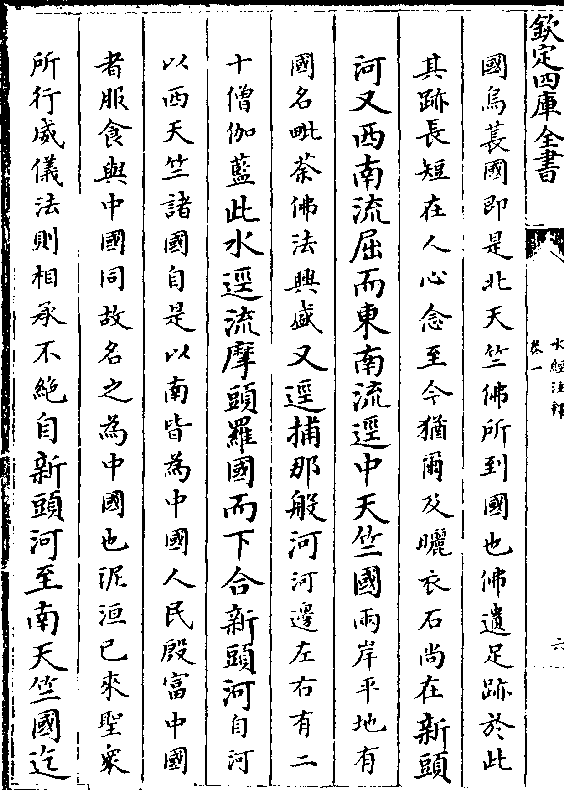 欽定四庫全書
水經注釋
卷一
六
國烏萇國即是北天竺佛所到國也佛遺足跡於此
其跡長短在人心念至今猶爾及曬衣石尚在新頭
河又西南流屈而東南流逕中天竺國兩岸平地有
國名毗荼佛法興盛又逕捕那般河河邊左右有二
十僧伽藍此水逕流摩頭羅國而下合新頭河自河
以西天竺諸國自是以南皆為中國人民殷富中國
者服食與中國同故名之為中國也泥洹已來聖衆
所行威儀法則相承不絶自新頭河至南天竺國迄